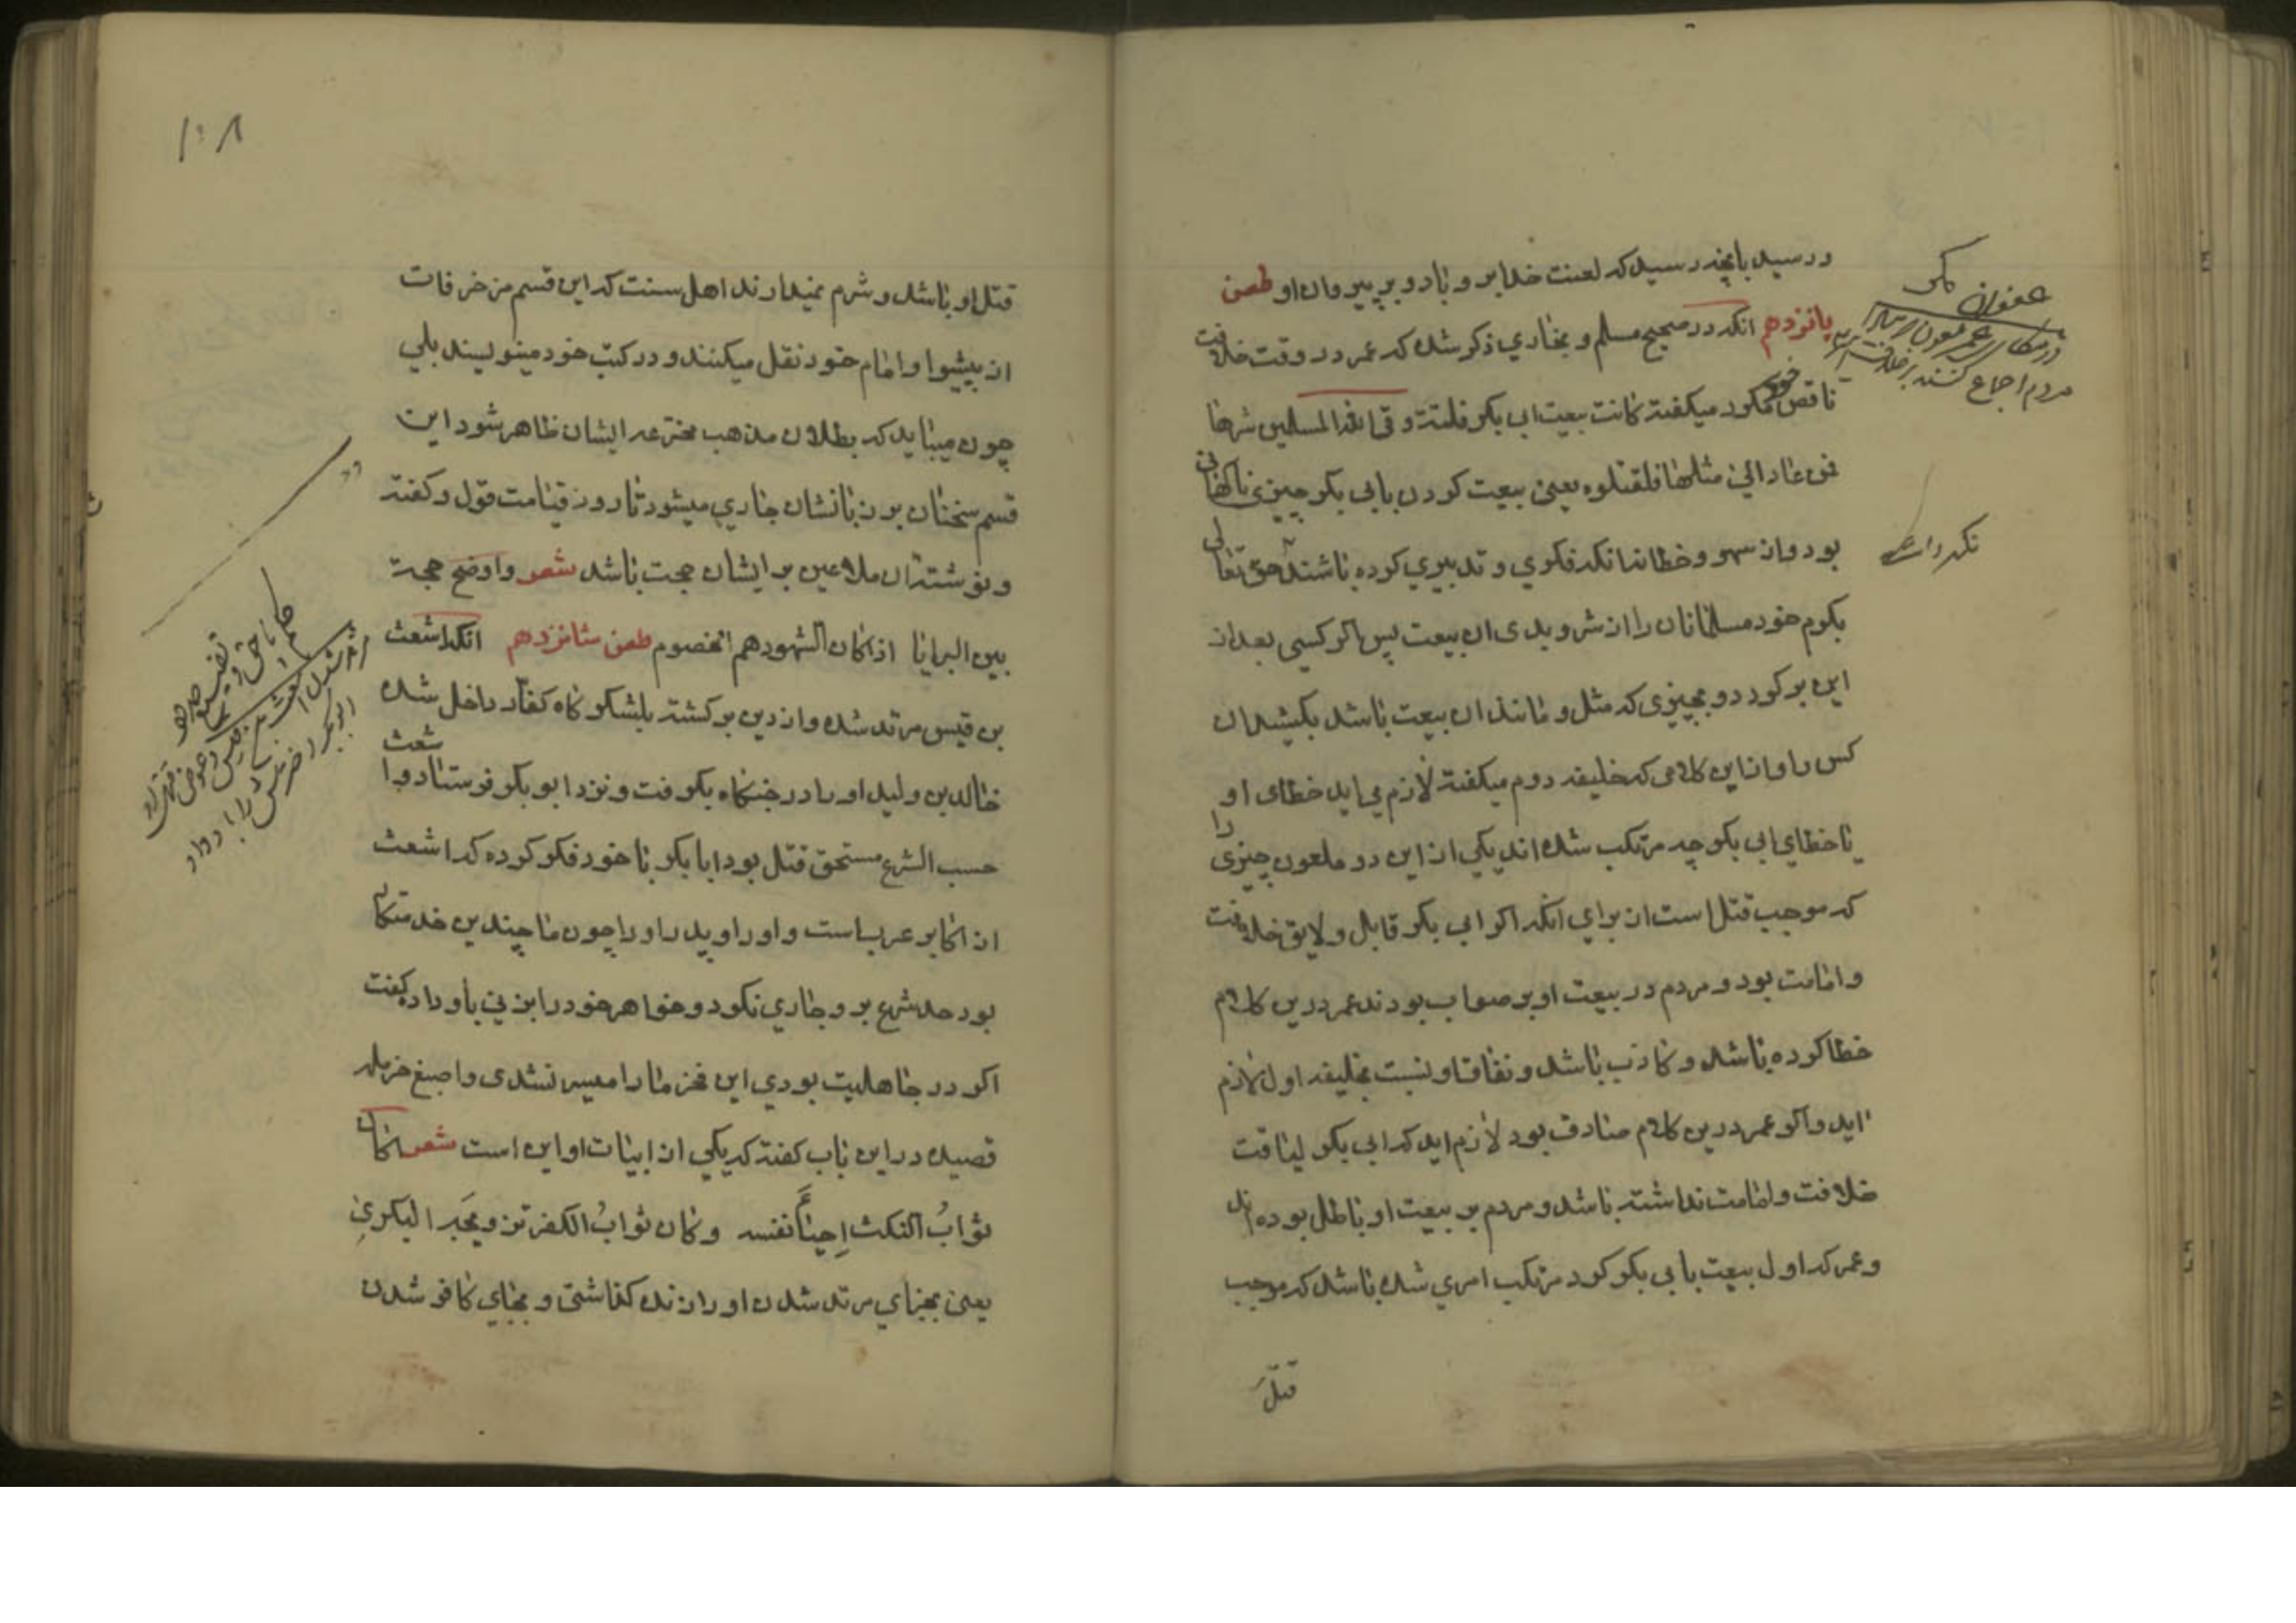 ورسید بانچه رسید که لعنت خدا برو باد و بر پیروان او طعن
پانزدهم انکه در صحیح مسلم و بخاری ذکر شده که عمر در وقت خلافت
ناقص خود میکفته کانت بیعت ابی بکر فلتة وقی الله المسلمین شرها
فمن عاد الی مثلها فاقتلوه یعنی بیعت کردن بابی بکر چیزی ناکهانی
بود و از سهو و خطا نه انکه فکری و تدبیری کرده باشند حق تعالی
بکرم خود مسلمانان را از شر و بدی ان بیعت پس اکر کسی بعد از
این بر کردد و بچیزی که مثل و مانند ان بیعت باشد بکشید ان
کس را و از این کلامی که خلیفه دوم میکفته لازم می اید خطای او
یا خطای ابی بکر چه مرتکب شده اند یکی از این دو ملعون چیزی را
که موجب قتل است از برای انکه اکر ابی بکر قابل و لایق خلافت
و امامت بود و مردم در بیعت او بر صواب بودند عمر درین کلام
خطا کرده باشد و کاذب باشد و نفاق او نسبت بخلیفه اول لازم
اید و اکر عمر درین کلام صادق بود لازم اید که ابی بکر لیاقت
خلافت و امامت نداشته باشد و مردم بر بیعت او باطل بوده اند
و عمر که اول بیعت بابی بکر کرد مرتکب امری شده باشد که موجب
قتل
نکه داشت
مردم اجماع
۱۰۸
قتل او باشد و شرم نمیدارند اهل سنت که این قسم مزخرفات
از پیشوا و امام خود نقل میکنند و در کتب خود مینویسند بلی
چون میباید که بطلان مذهب مخترعه ایشان ظاهر شود این
قسم سخنان بر زبانشان جاری میشود تا روز قیامت قول و کفته
و نوشته ان ملاعین بر ایشان حجت باشد شعر واوضح حجة
بین البرایا اذا کان الشهود هم الخصوم طعن شانزدهم انکه اشعث
بن قیس مرتد شده و از دین بر کشته بلشکر کاه کفار داخل شده
خالد بن ولید او را در جنکاه بکرفت و نزد ابو بکر فرستاد و اشعث
حسب الشرع مستحق قتل بود ابا بکر با خود فکر کرده که اشعث
از اکابر عرب است و او را و پدر او را چون ما چندین خدمتکار
بود حد شرع بر و جاری نکرد و خواهر خود را بزنی باو داد کفت
اکر در جاهلیت بودی این فخر ما را میسر نشدی و اصبغ حرمله
قصیده در این باب کفته که یکی از ابیات او این است شعر اکان
ثواب النکث احیاء نفسه وکان ثواب الکفر تزویجه البکری
یعنی بجزای مرتد شدن او را زنده کذاشتی و بجای کافر شدن